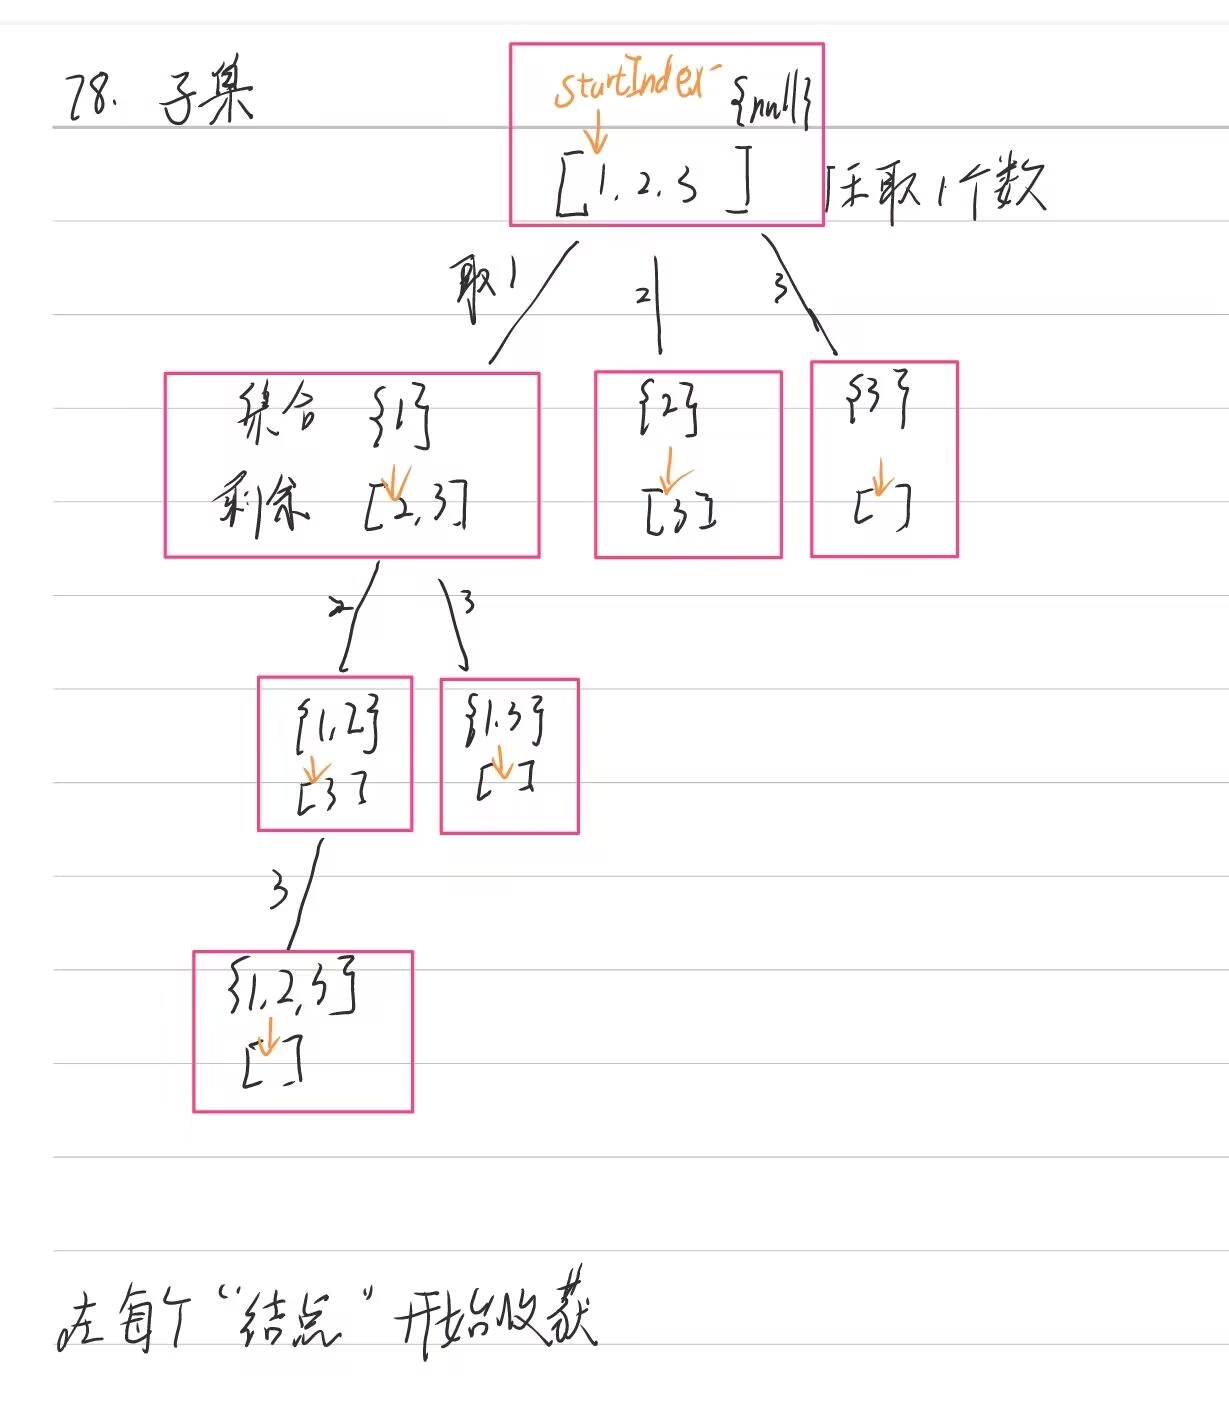 78. 子集
startIndex {null}
[1,2,3] 任取1个数
取1 2 3
集合 {1} {2} {3}
剩余 [2,3] [3] []
2 3
{1,2} {1.3}
[3] []
3
{1,2,3}
[]
在每个“结点”开始收获